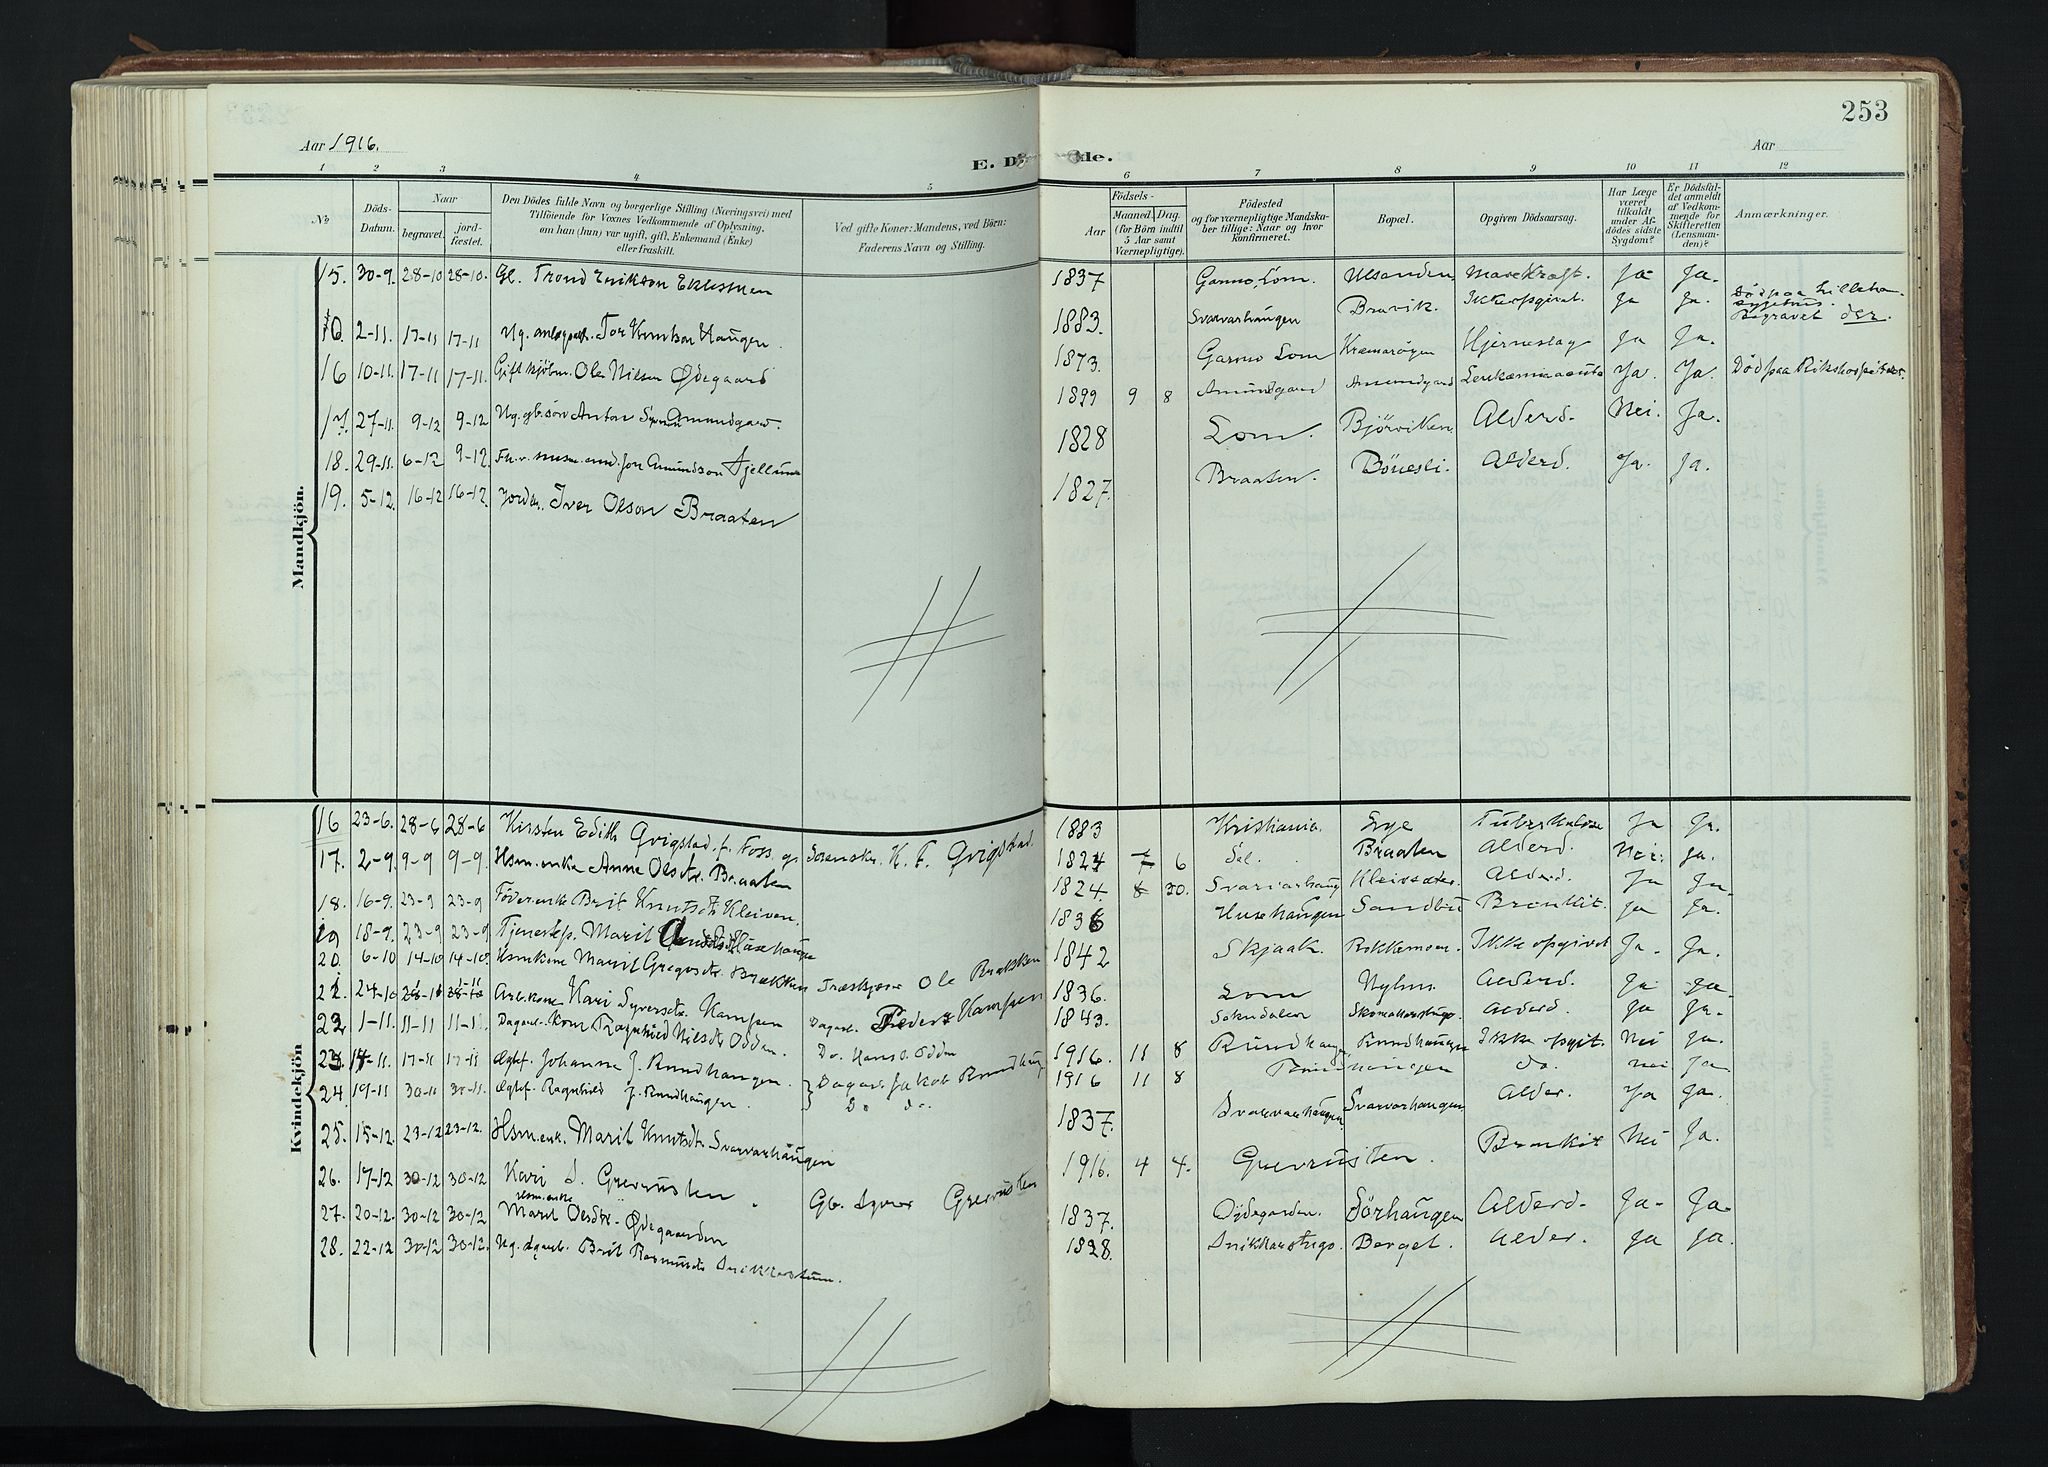 253
Aar 1916.
Aar
E. Døde.
1 2 3 4 5 6 7 8 9 10 11 12
No
Döds-Datum.
Naar
begravet.
jord-fæstet.
Den Dödes fulde Navn og borgerlige Stilling (Næringsvei) med Tilföiende för Voxnes Vedkommende af Oplysning, om han (hun) var ugift, gift, Enkemand (Enke) eller fraskilt.
Ved gifte Koner: Mandens, ved Börn: Faderens Navn og Stilling.
Födsels-
Aar
Maaned. Dag.
(for Börn indtil 5 Aar samt Værnepligtige).
Födested og for værnepligtige Mandskaber tillige: Naar og hvor Konfirmeret.
Bopæl.
Opgiven Dödsaarsag.
Har Læge været tilkaldt under Afdödes sidste Sygdom?
Er Dödsfaldet anmeldt af Vedkommende for Skifteretten (Lensmanden)?
Anmærkninger.
Mandkjön.
15. 30-9. 28-10 28-10. Gl. Trond Erikson 1837 Garmo, Lom. Ulsanden Marekraft. Ja Ja.
2-11. 17-11 17-11 Ug. Tor Knutson Haugen. 1883. Svarvarhaugen Bravik. Ikke opgivet Ja Ja. Död paa Lilleham. sygehus. Begravet der.
16 10-11. 17-11 17-11. Gift kjöbm. Ole Nilsen Ødegaard 1873. Garmo Lom Hjerneslag Ja Ja.
17. 27-11. 9-12 9-12 Ug. gb.sön Anton Amundgard. 1899 9 8 Amundgard Amundgard Leukæmia acuta Ja. Ja. Död paa Rikshospitalet.
18. 29-11. 6-12 9-12. Jon Amundson 1828 Lom. Björviken Alderd. Nei. Ja.
19. 5-12. 16-12 16-12. Iver Olson Braaten 1827. Braaten. Bönesli. Alderd. Ja. Ja.
Kvindekjön
16 23-6. 28-6 28-6 Kirsten Edith Qvigstad, f. Foss. Sorenskr. K. F. Qvigstad. 1883 Kristiania. Sye Tuberkulose Ja Ja.
17. 2-9. 9-9 9-9. Hsm.enke Anne Olsdtr. Braaten 1827 7 6 Sel. Braaten Alderd. Nei. Ja.
18. 16-9. 23-9 23-9 Föder.enke Brit Knutsdtr Kleiven. 1824. 8 20. Svarvarhaug Kleivsæter. Alderd. Ja Ja
19 18-9. 23-9 23-9 Tjenestep. Marit Husehaugen 1836 Husehaugen Sandbu Bronkit. Ja Ja.
20. 6-10 14-10 14-10 Marit Gregosdtr. Brækken Træskjær Ole Brækken 1842 Skjaak. Ikke opgivet Ja. Ja.
24-10 Kari Syversdtr. Hampen Peder Hampen 1836. Lom Nyhus Alderd. Ja Ja.
22. 1-11. 11-11 11-11. Dagarb. kone Ragnhild Nilsdtr Odden. Do. Hans O. Odden 1843. Alderd. Ja Ja.
23. 17-11 17-11 Johanne J. Rundhaugen. Dagarb. Jakob Rundhaug 1916. 11 8 Rundhaug Rundhaugen Ikke opgit. Nei Ja.
24. 19-11 30-11 30-11. Ragnhild J. Rundhaugen. Do do. 1916 11 8 Rundhaugen do. nei Ja
25. 15-12. 23-12 23-12. Hsm.enk. Marit Knutsdtr. Svarvarhaugen 1837. Svarvarhaugen Svarvarhaugen Alder. Ja Ja.
26. 17-12 30-12 30-12 Kari S. Grevrusten Gb. Syver Grevrusten 1916. 4 4. Grevrusten. Bronkit Nei Ja.
27. 20-12. 30-12 30-12 Hsm.enke Marit Olsdtr. Ødegaarden 1837. Ödegarden. Sörhaugen Alderd. Ja. Ja.
28. 22-12 30-12 30-12. Ug. Brit Rasmusdtr Snikkarstuen. 1828. Snikkarstugo. Berget. Alder. Ja Ja.